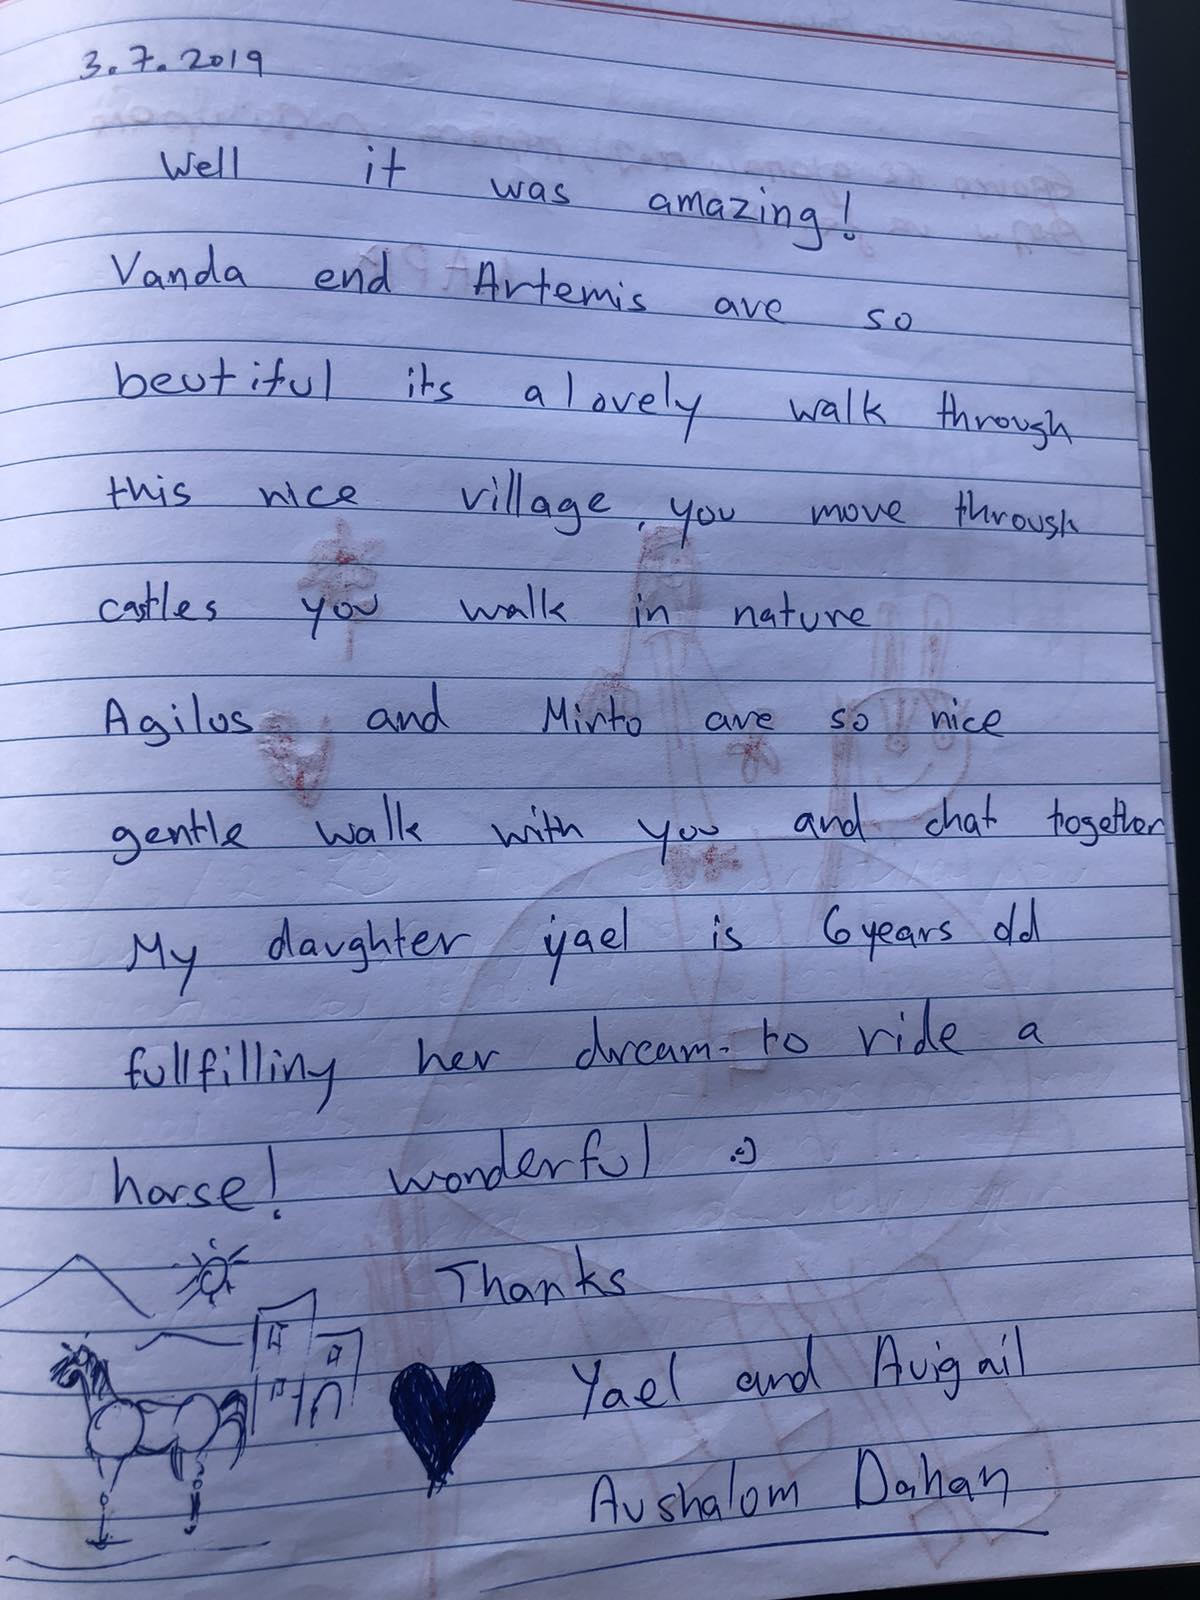 3.7.2019
Well it was amazing!
Vanda end Artemis are so
beutiful its a lovely walk through
this nice village, you move through
castles you walk in nature
Agilos and Mirto are so nice
gentle walk with you and chat together
My daughter yael is 6 years old
fullfilling her dream. to ride a
horse! wonderful :)
Thanks
Yael and Avigail
Avshalom Dahan